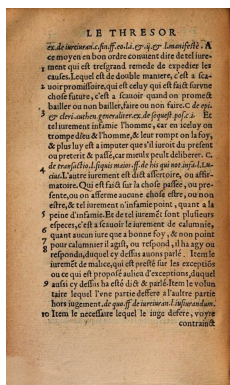 LE THRESOR
ex.de iureiuran.c.fin.ff.eo.li.& ij.& l.manifestè. A
ce moyen en bon ordre conuient dire de iure-
ment qui est tresgrand remede de expedier les
causes. Lequel est de double maniere, c'est a sca-
uoir promissoire, qui est celuy qui est faict sur vne
chose future, c'est a scauoir quand on promect
bailler ou non bailler, faire ou non faire. C. de epi
& cleri.
tel iurement infamie l'homme, car en iceluy on
trompe dieu & l'homme, & leur rompt on la foy,
& plus luy est a imputer que s'il iuroit du present
ou preterit & passé, car mieulx peult deliberer. C.
de transactio.l.siquis maior.ff.de his qui not.infa.l.Lu
cius. L'autre iurement est dict assertoire, ou affir-
matoire. Qui est faict sur la chose passée, ou pre-
sente, ou on afferme aucune chose estre, ou non
estre, & tel iurement n'infamie point, quant a la
5 peine d'infamie. Et de tel iuremét sont plusieurs
especes, c'est a scauoir le iurement de calumnie,
quant aucun iure que a bonne foy, & non point
pour calumnier il agist, ou respond, il ha agy ou
respondu, duquel cy dessus auons parlé. Item le
iuremét de malice, qui est presté sur les exceptiõs
ou ce qui est proposé aulieu d'exceptions, duquel
9 aussi cy dessus ha esté dict & parlé. Item le volun
taire lequel l'vne partie deffere a l'aultre partie
hors iugement. de quo.ff.de iureiuran.l.iusiurandum.
10 Item le necessaire lequel le iuge defere, voyre
contrainct